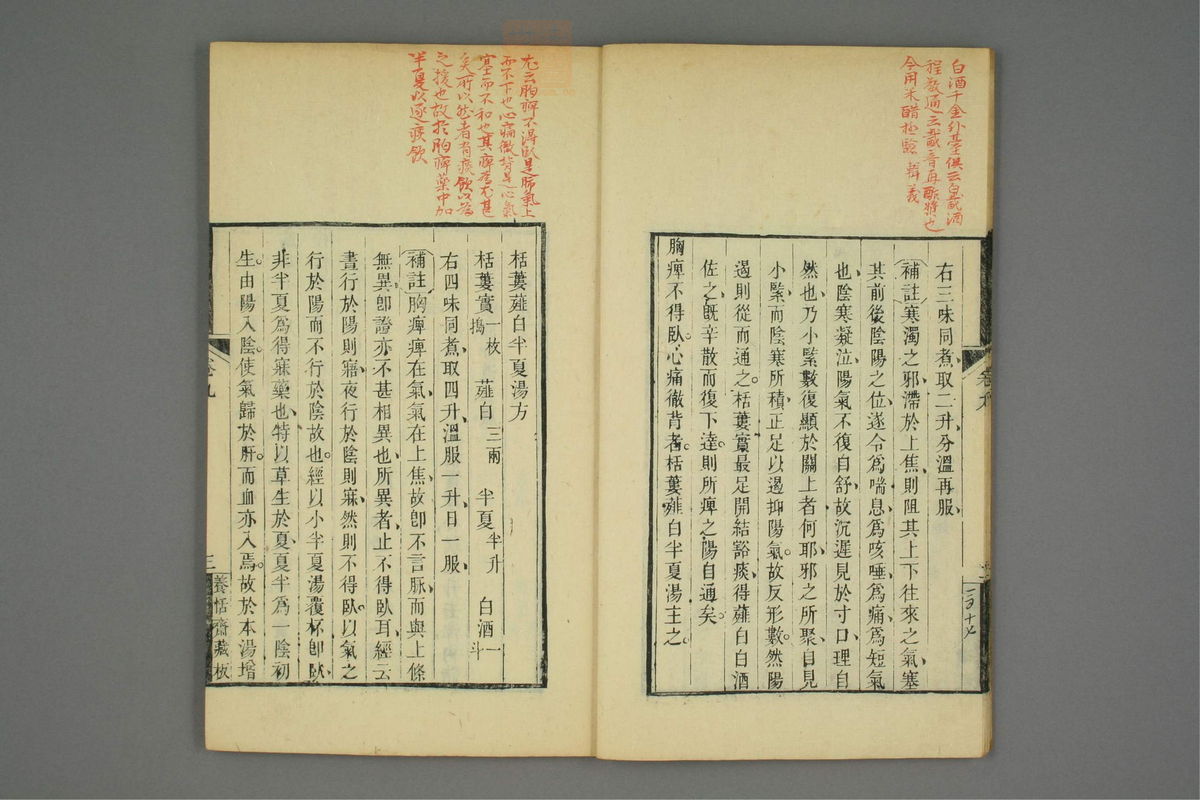 白酒千金外臺俱云白酨酒
程敬通云酨音再酢漿也
今用米醋極驗 輯義
右三味同煮取二升分溫再服
補註寒濁之邪滯於上焦則阻其上下往來之氣塞
其前後陰陽之位遂令爲喘息爲咳唾爲痛爲短氣
也陰寒凝泣陽氣不復自舒故沉遲見於寸口理自
然也乃小緊數復顯於關上者何耶邪之所聚自見
小緊而陰寒所積正足以遏抑陽氣故反形數然陽
遏則從而通之栝蔞實最足開結豁痰得薤白白酒
佐之既辛散而復下達則所痺之陽自通矣
胸痺不得臥心痛徹背者栝蔞薤白半夏湯主之
卷九
尤云胸痺不得臥是肺氣上
而不下也心痛徹背是心氣
塞而不和也其痺爲尤甚
矣所以然者有痰飲以爲
之援也故於胸痺藥中加
半夏以逐痰飲
栝蔞薤白半夏湯方
栝蔞實一枚搗 薤白三兩 半夏半升 白酒一斗
右四味同煮取四升溫服一升日一服
補註胸痺痺在氣氣在上焦故卽不言脉而與上條
無異卽證亦不甚相異也所異者止不得臥耳經云
晝行於陽則寤夜行於陰則寐然則不得臥以氣之
行於陽而不行於陰故也經以小半夏湯覆杯卽臥
非半夏爲得寐藥也特以草生於夏夏半爲一陰初
生由陽入陰使氣歸於肝而血亦入焉故於本湯增
卷九 三 養恬齋藏板